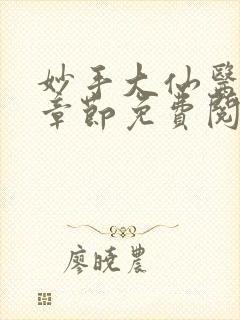 妙手大仙醫
章節免費閱
廖曉農